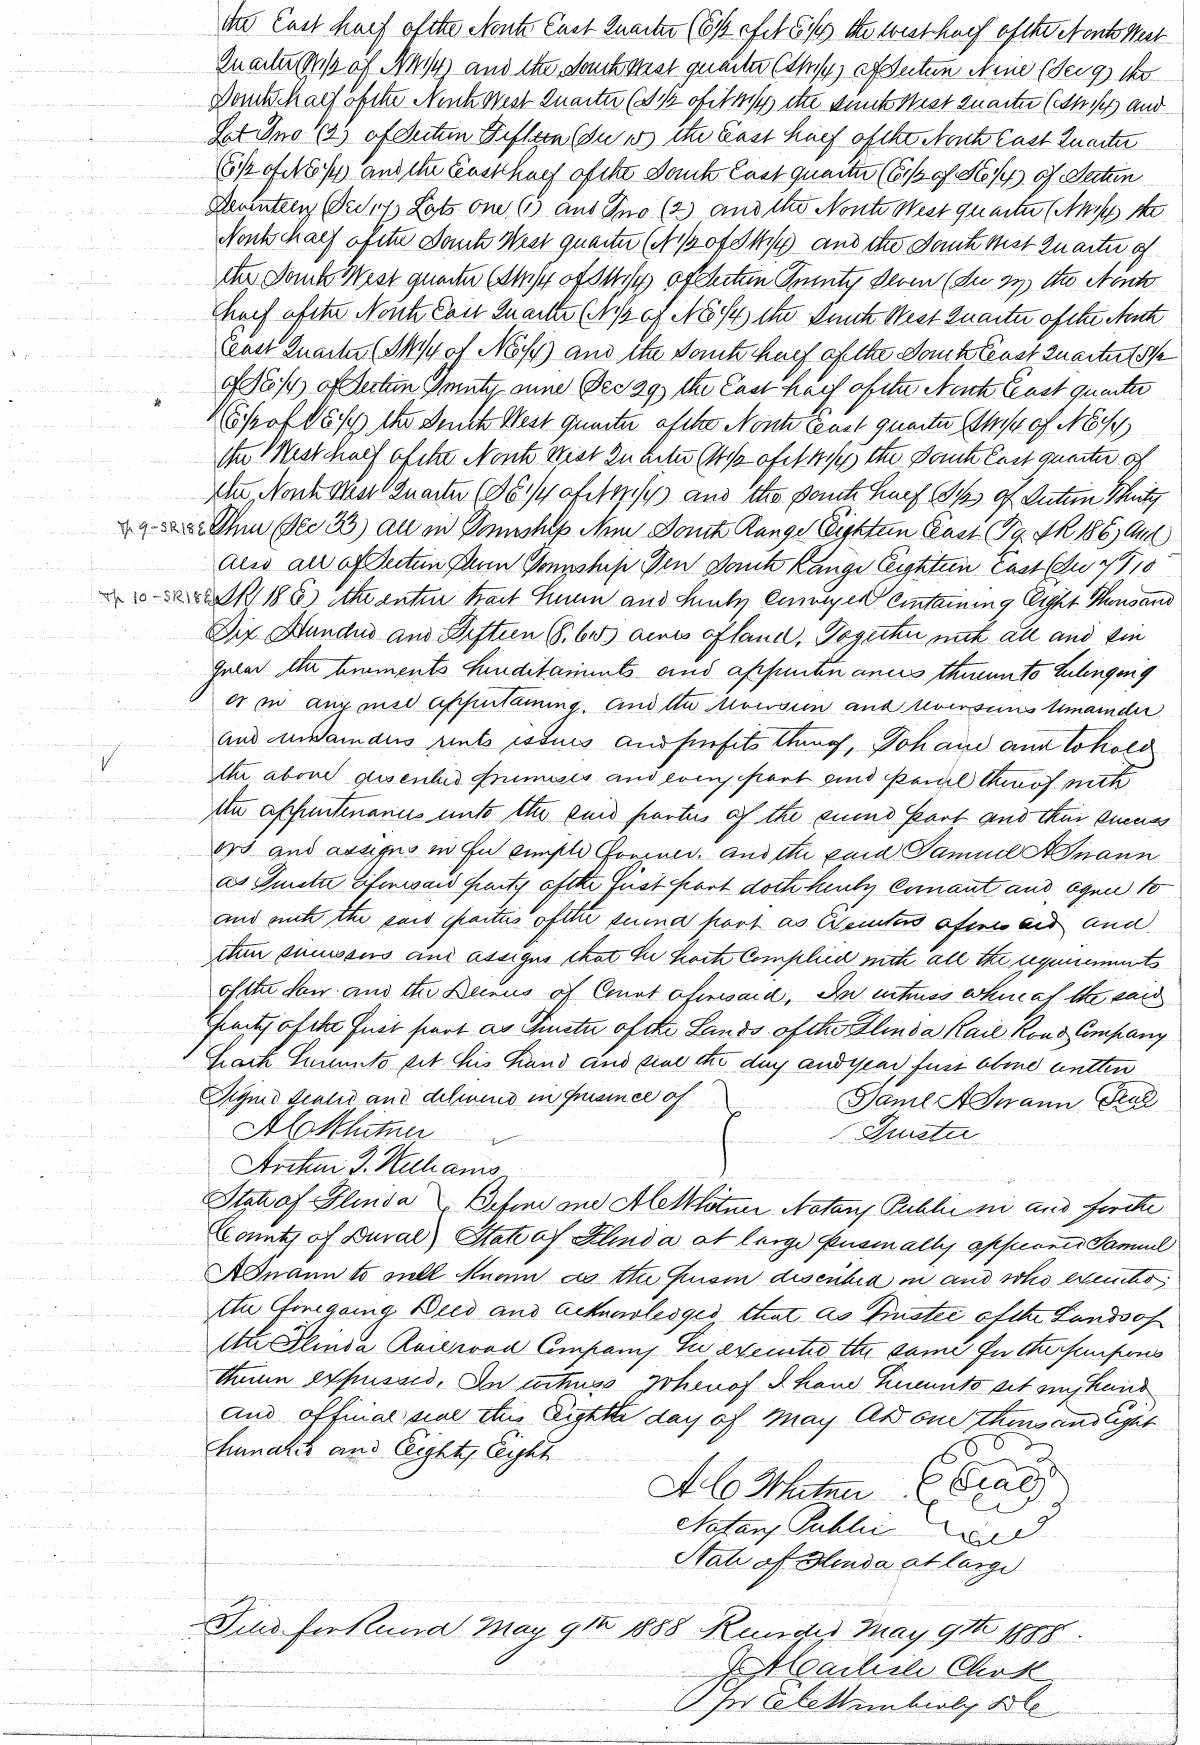 the East half of the North East Quarter (E1/2 of NE1/4) the west half of the North West
Quarter (W1/2 of NW1/4) and the South West quarter (SW1/4) of Section Nine (Sec 9) the
South half of the North West Quarter (S1/2 of NW1/4) the South West Quarter (SW1/4) and
Lot Two (2) of Section Fifteen (Sec 15) the East half of the North East Quarter
(E1/2 of NE1/4) and the East half of the South East quarter (E1/2 of SE1/4) of Section
Seventeen (Sec 17) Lots one (1) and Two (2) and the North West quarter (NW1/4) the
North half of the South West quarter (N1/2 of SW1/4) and the South West Quarter of
the South West quarter (SW1/4 of SW1/4) of Section Twenty Seven (Sec 27) the North
half of the North East Quarter (N1/2 of NE1/4) the South West Quarter of the North
East Quarter (SW1/4 of NE1/4) and the South half of the South East Quarter (S1/2
of SE1/4) of Section Twenty nine (Sec 29) the East half of the North East quarter
(E1/2 of NE1/4) the South West quarter of the North East quarter (SW1/4 of NE1/4)
the West half of the North West Quarter (W1/2 of NW1/4) the South East quarter of
the North West Quarter (SE1/4 of NW1/4) and the South half (S1/2) of Section Thirty
Tp 9-SR18E Three (Sec 33) all in Township Nine South Range Eighteen East (T9 SR 18E) And
also all of Section Seven Township Ten South Range Eighteen East (Sec 7 T 10
Tp 10-SR18E SR 18 E) the entire tract herein and hereby conveyed containing Eight Thousand
Six Hundred and Fifteen (8.615) acres of land. Together with all and sin
gular the tenements hereditaments and appurtenances thereunto belonging
or in any wise appertaining. and the reversion and reversions remainder
and remainders rents issues and profits thereof, To have and to hold
the above described premises and every part and parcel thereof with
the appurtenances unto the said parties of the second part and their success
ors and assigns in fee simple forever. and the said Samuel A Swann
as Trustee aforesaid party of the first part doth hereby covenant and agree to
and with the said parties of the second part as Executors aforesaid and
their successors and assigns that he hath complied with all the requirements
of the Law and the Decrees of Court aforesaid. In witness whereof the said
party of the first part as Trustee of the Lands of the Florida Rail Road Company
hath hereunto set his hand and seal the day and year first above written
Signed sealed and delivered in presence of Saml A Swann Seal
A C Whitner Trustee
Arthur T. Williams
State of Florida } Before me A C Whitner Notary Public in and for the
County of Duval } State of Florida at large personally appeared Samuel
A Swann to well known as the person described in and who executed
the foregoing Deed and acknowledged that as Trustee of the Lands of
the Florida Railroad Company he executed the same for the purposes
therein expressed. In witness whereof I have hereunto set my hand
and official seal this Eighth day of May AD one thousand Eight
hundred and Eighty Eight
A C Whitner Seal
Notary Public
State of Florida at large
Filed for Record May 9th 1888 Recorded May 9th 1888.
J A Carlisle Clerk